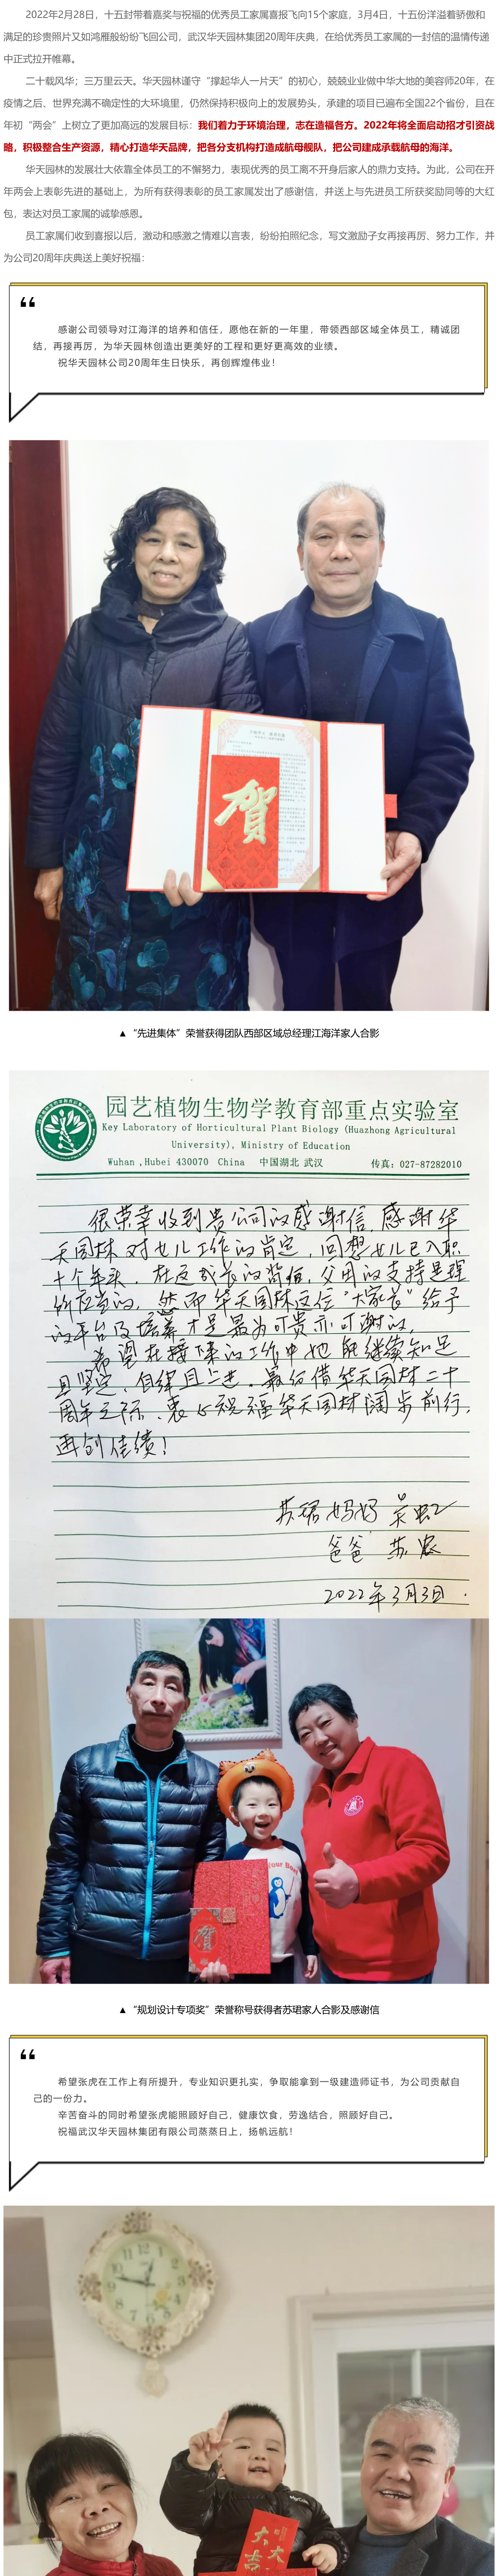 2022年2月28日，十五封带着嘉奖与祝福的优秀员工家属喜报飞向15个家庭，3月4日，十五份洋溢着骄傲和
满足的珍贵照片又如鸿雁般纷纷飞回公司，武汉华天园林集团20周年庆典，在给优秀员工家属的一封信的温情传递
中正式拉开帷幕。
二十载风华；三万里云天。华天园林谨守“撑起华人一片天”的初心，兢兢业业做中华大地的美容师20年，在
疫情之后、世界充满不确定性的大环境里，仍然保持积极向上的发展势头，承建的项目已遍布全国22个省份，且在
年初“两会”上树立了更加高远的发展目标：我们着力于环境治理，志在造福各方。2022年将全面启动招才引资战
略，积极整合生产资源，精心打造华天品牌，把各分支机构打造成航母舰队，把公司建成承载航母的海洋。
华天园林的发展壮大依靠全体员工的不懈努力，表现优秀的员工离不开身后家人的鼎力支持。为此，公司在开
年两会上表彰先进的基础上，为所有获得表彰的员工家属发出了感谢信，并送上与先进员工所获奖励同等的大红
包，表达对员工家属的诚挚感恩。
员工家属们收到喜报以后，激动和感激之情难以言表，纷纷拍照纪念，写文激励子女再接再厉、努力工作，并
为公司20周年庆典送上美好祝福：
感谢公司领导对江海洋的培养和信任，愿他在新的一年里，带领西部区域全体员工，精诚团
结，再接再厉，为华天园林创造出更美好的工程和更好更高效的业绩。
祝华天园林公司20周年生日快乐，再创辉煌伟业！
賀
▲“先进集体”荣誉获得团队西部区域总经理江海洋家人合影
园艺植物生物学教育部重点实验室
Key Laboratory of Horticultural Plant Biology (Huazhong Agricultural
University), Ministry of Education
Wuhan ,Hubei 430070 China 中国湖北 武汉 传真：027-87282010
很荣幸收到贵公司的感谢信，感谢华
天园林对女儿工作的肯定，回想女儿已入职
十个年头，在这成长的背后，父母的支持是理
所应当的，然而华天园林这位“大家长”给予
的平台及培养才是最为可贵亦可谢的，
希望在接下来的工作中她能继续知足
且坚定、自律且上进。最后借华天园林二十
周年之际，衷心祝福华天园林阔步前行，
再创佳绩！
苏珺妈妈 吴
爸爸 苏
2022年3月3日.
賀
▲“规划设计专项奖”荣誉称号获得者苏珺家人合影及感谢信
希望张虎在工作上有所提升，专业知识更扎实，争取能拿到一级建造师证书，为公司贡献自
己的一份力。
辛苦奋斗的同时希望张虎能照顾好自己，健康饮食，劳逸结合，照顾好自己。
祝福武汉华天园林集团有限公司蒸蒸日上，扬帆远航！
大吉